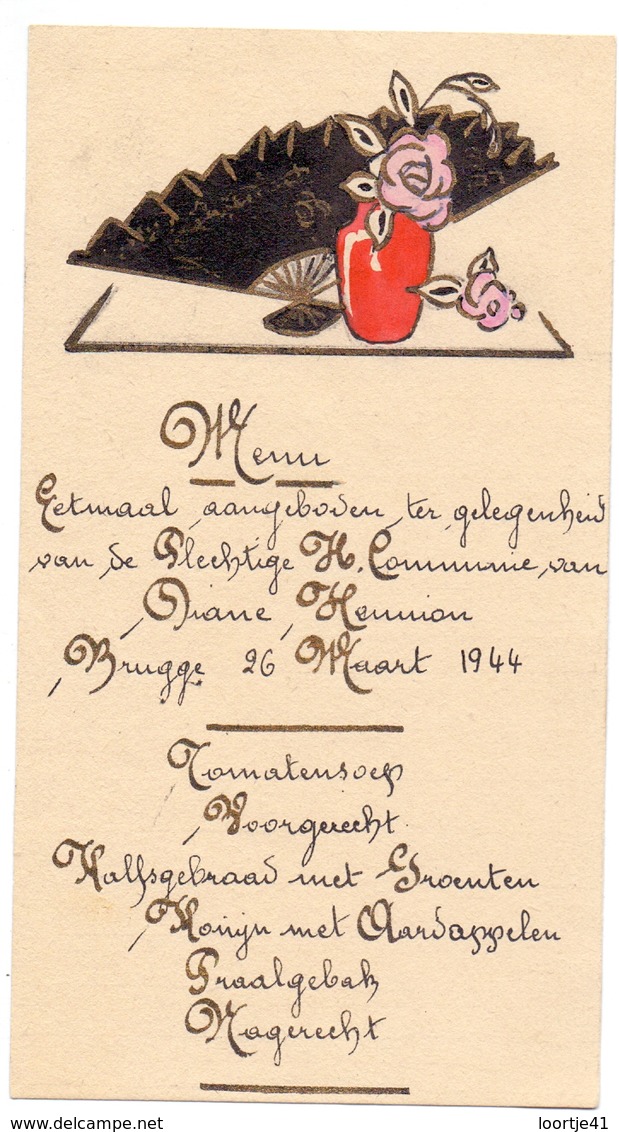 Menu
Eetmaal aangeboden ter gelegenheid
van de Plechtige H. Communie van
Diane Hennion
Brugge 26 Maart 1944
Tomatensoep
Voorgerecht
Kalfsgebraad met Groenten
Konijn met Aardappelen
Praalgebak
Nagerecht
www.delcampe.net
loortje41